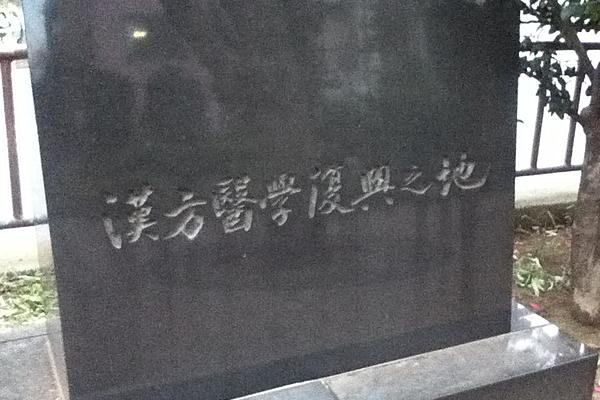 漢方醫学復興之地